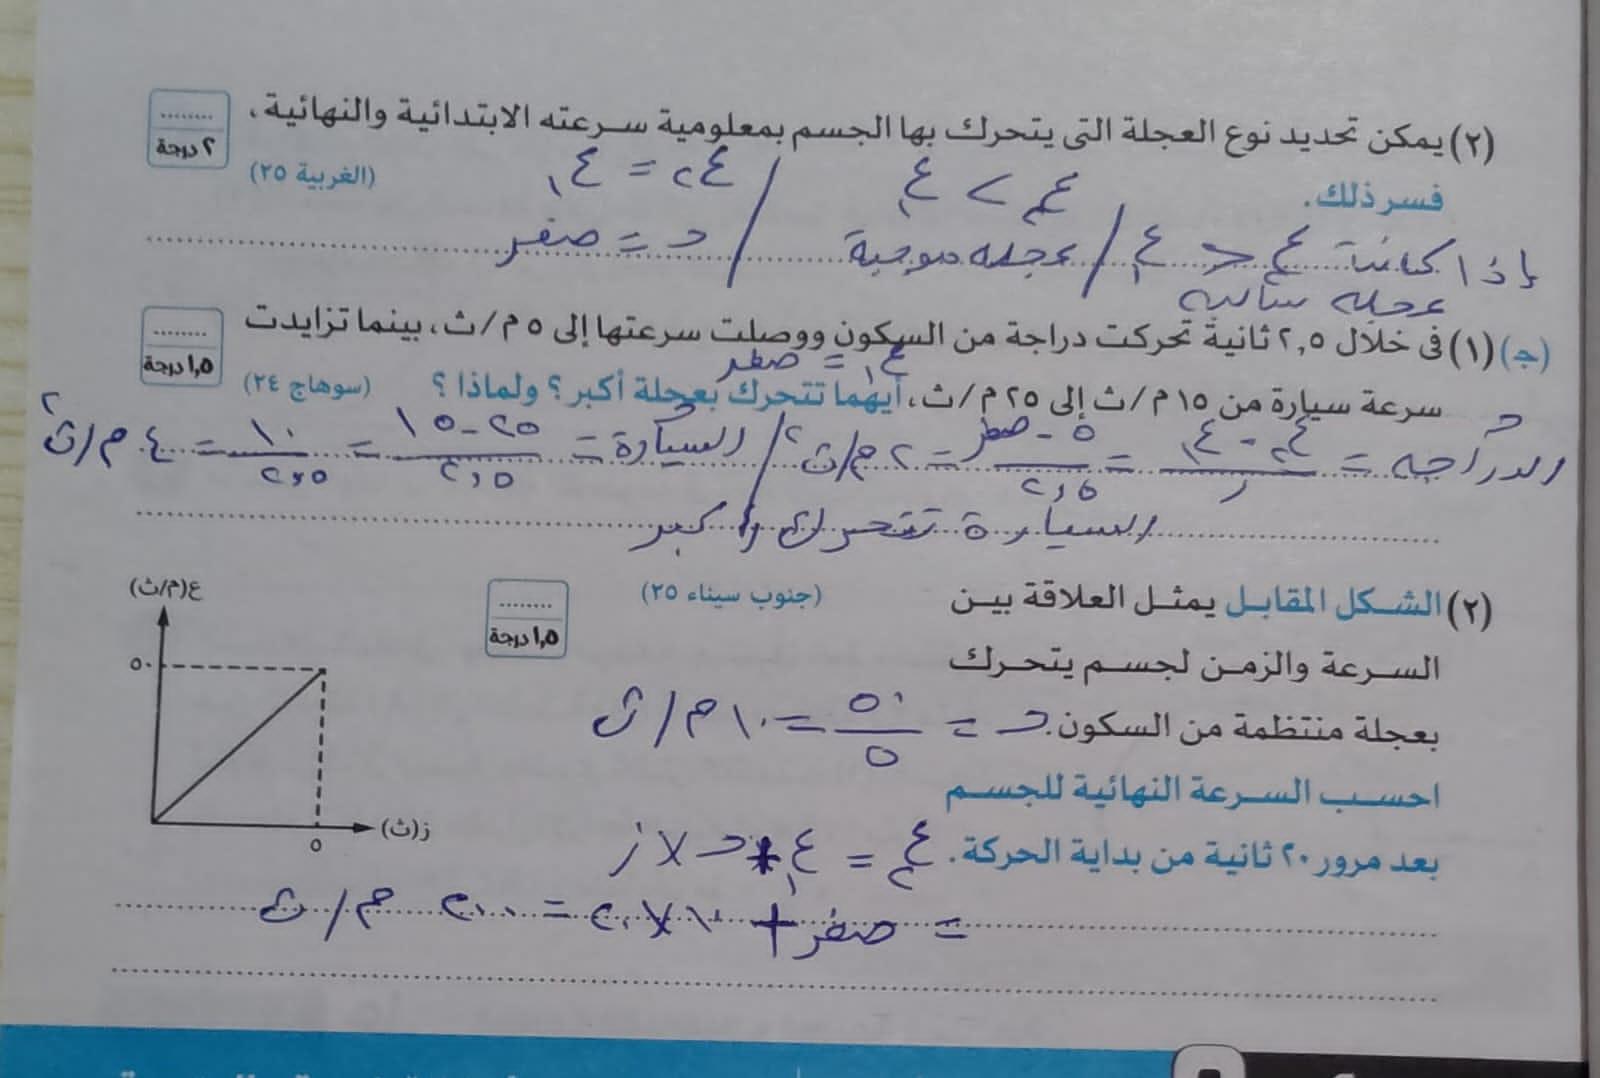 (٢) يمكن تحديد نوع العجلة التى يتحرك بها الجسم بمعلومية سرعته الابتدائية والنهائية،
........
٢ درجة
فسر ذلك.
(الغربية ٢٥)
ع٢ > ع١ / ع٢ = ع١
إذا كانت ع٢ < ع١ / عجله موجبة / حـ = صفر
عجله سالبه
(جـ) (١) فى خلال ٢,٥ ثانية تحركت دراجة من السكون ووصلت سرعتها إلى ٥ م/ث، بينما تزايدت
........
١,٥ درجة
ع١ = صفر
سرعة سيارة من ١٥ م/ث إلى ٢٥ م/ث، أيهما تتحرك بعجلة أكبر؟ ولماذا؟
(سوهاج ٢٤)
حـ الدراجه = ع٢ - ع١ / ز = ٥ - صفر / ٢,٥ = ٢ م/ث٢ / حـ السيارة = ٢٥ - ١٥ / ٢,٥ = ١٠ / ٢,٥ = ٤ م/ث٢
السيارة تتحرك أكبر
(٢) الشكل المقابل يمثل العلاقة بين
(جنوب سيناء ٢٥)
........
١,٥ درجة
السرعة والزمن لجسم يتحرك
بعجلة منتظمة من السكون.
حـ = ٥٠ / ٥ = ١٠ م/ث
احسب السرعة النهائية للجسم
بعد مرور ٢٠ ثانية من بداية الحركة.
ع٢ = ع١ + حـ × ز
= صفر + ١٠ × ٢٠ = ٢٠٠ م/ث
ع(م/ث)
٥٠
ز(ث)
٥